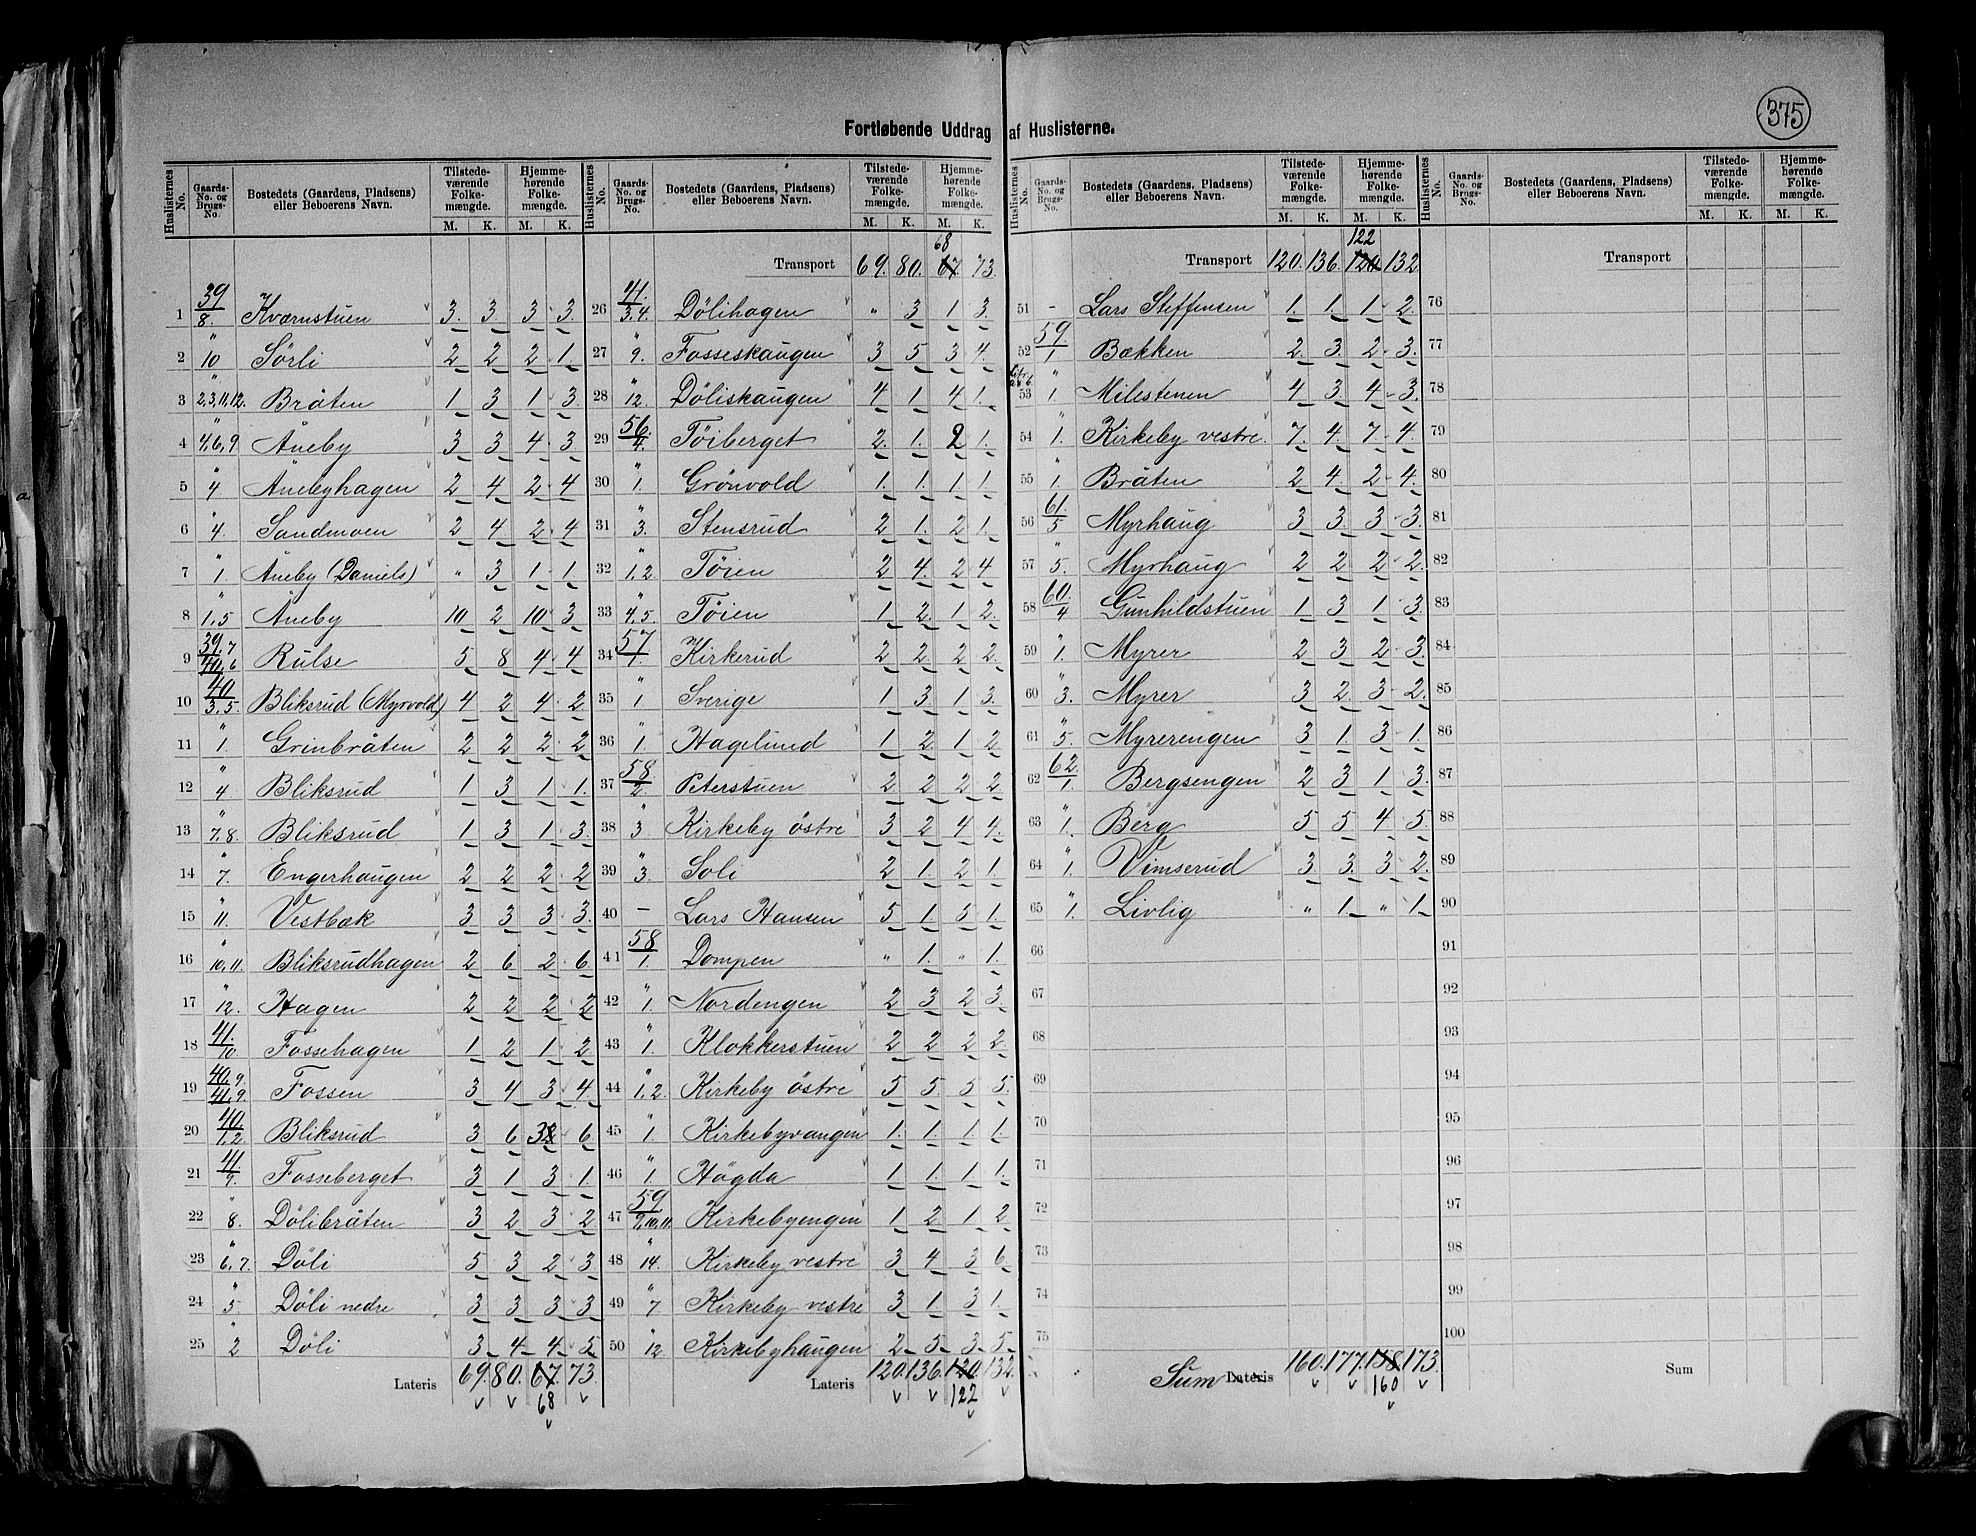 375
Fortløbende Uddrag af Huslisterne.
Huslisternes No. Gaards-No. og Brugs-No. Bostedets (Gaardens, Pladsen) eller Beboerens Navn. Tilstedeværende Folkemængde. M. K. Hjemmehørende Folkemængde. M. K.
1 39/8. Kværnstuen 3. 3. 3 3.
2 " 10 Sörli 2 2 2 1
3 " 2,3,11,12. Bråten 1 3 1 3.
4 " 4,6,9 Åneby 3 3 4 3
5 " 4 Ånebyhagen 2 4 2 4
6 " 4. Sandmoen 2 4 2 4
7 " 1. Åneby (Daniels) " 3 1 1
8 " 1,5 Åneby 10 2 10 3
9 39,7 40,6 Rulse 5 8 4 4
10 40/3,5. Bliksrud (Myrvold) 4 2 4 2
11 " 1. Grinbråten 2 2 2 2
12 " 4 Bliksrud 1 3 1 1.
13 " 7,8. Bliksrud 1 3 1 3.
14 " 7. Engerhaugen 2 2 2 2
15 " 11. Vestbak 3 3 3 3.
16 " 10,11. Bliksrudhagen 2 6 2 6.
17 " 12. Hagen 2 2 2 2
18 41./10 Fossehagen 1 2 1 2
19 40,9. 41,9. Fossen 3 4 3 4
20 40./1,2. Bliksrud 3 6 3 6
21 41/9. Fosseberget 3 1 3 1
22 " 8. Dölibråten 3 2 3 2
23 " 6,7. Döli 5 3 2 3
24 " 5 Döli nedre 3 3 3 3
25 " 2 Döli 3 4 4 5
Lateris 69. 80. 67. 73.
68
68
Transport 69. 80. 67 73.
26 41./3,4. Dölihagen " 3 1 3.
27 " 9. Fosseskaugen 3 5 3 4.
28 " 12. Döliskaugen 4 1 4 1.
29 56/4. Töiberget 2. 1. 2 1.
30 " 1. Grönvold 1. 1. 1 1.
31 " 3. Stensrud 2 1. 2 1.
32 " 1,2. Töien 2 4. 2 4
33 " 4,5 Töien 1 2. 1 2.
34 57/1. Kirkerud 2 2. 2 2.
35 " 1 Sverige 1 3 1 3.
36 " 1. Hagelund 1 2 1 2
37 58/2. Peterstuen 2 2 2 2
38 " 3 Kirkeby östre 3 2 4 4.
39 " 3. Soli 2 1. 2 1.
40 - Lars Hansen 5 1 5 1.
41 58/1. Dompen " 1. " 1.
42 " 1 Nordengen 2 3 2 3.
43 " 1. Klokkerstuen 2 2 2 2.
44 " 1,2. Kirkeby östre 5 5 5 5.
45 " 1. Kirkebyvangen 1. 1. 1 1.
46 " 1 Högda 1 1. 1 1.
47 59/9,10,11. Kirkebyengen 1 2 1 2
48 " 14. Kirkeby vestre 3 4 3 6
49 " 7. Kirkeby vestre 3 1 3 1.
50 " 12. Kirkebyhaugen 2 5 3 5
Lateris 120. 136. 120. 132.
122
122
Transport 120. 136. 120 132
51 - Lars Steffensen 1. 1. 1 2.
52 59./1. Bækken 2. 3. 2 3.
53 " 1. Milestenen 4 3 4 3.
54 " 1. Kirkeby vestre. 7. 4. 7 4.
55 " 1. Bråten 2 4. 2 4.
56 61./5 Myrhaug 3 3. 3 3.
57 " 5. Myrhaug 2 2 2 2.
58 60./4 Gunhildstuen 1 3 1 3.
59 " 1. Myrer 2 3 2 3.
60 " 3. Myrer 3 2. 3 2.
61 " 5. Myrerengen 3 1 3 1.
62 62./1. Bergsengen 2 3 1 3.
63 " 1. Berg 5 5 4 5.
64 " 1. Vimserud 3 3. 3 2.
65 " 1. Livlig " 1. " 1.
66
67
68
69
70
71
72
73
74
75
Sum Lateris 160. 177. 158. 173.
160
Transport
76
77
78
79
80
81
82
83
84
85
86
87
88
89
90
91
92
93
94
95
96
97
98
99
100
Sum